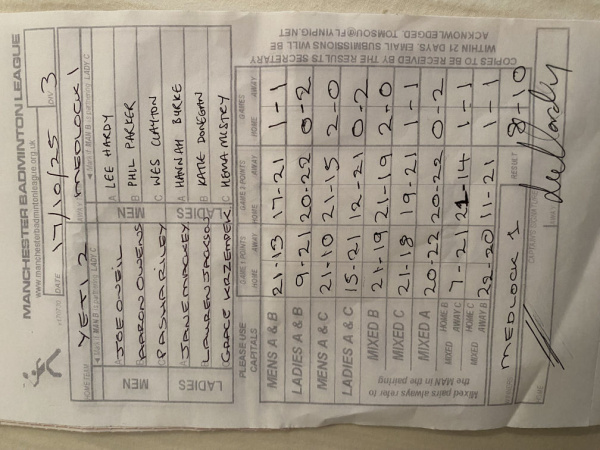 MANCHESTER BADMINTON LEAGUE
www.manchesterbadmintonleague.org.uk
DATE 17/10/25 DIV 3
HOME TEAM YETI 2 MEDLOCK 1
MEN
A JOE ONEIL A LEE HARDY
B AARON OWENS B PHIL PARKER
C PASHA RILEY C WES CLAYTON
LADIES
A JANE MACKEY A HANNAH BURKE
B LAUREN JACKSON B KATIE DONEGAN
C GRACE KRZEMPEK C HEMA MISTRY
PLEASE USE CAPITALS GAME 1 POINTS GAME 2 POINTS GAMES
HOME AWAY HOME AWAY HOME AWAY
MENS A & B 21-13 17-21 1-1
LADIES A & B 9-21 20-22 0-2
MENS A & C 21-10 21-15 2-0
LADIES A & C 15-21 12-21 0-2
MIXED B 21-19 21-19 2-0
MIXED C 21-18 19-21 1-1
MIXED A 20-22 20-22 0-2
MIXED HOME B AWAY C 7-21 21-14 1-1
MIXED HOME C AWAY B 22-20 11-21 1-1
Mixed pairs always refer to
the MAN in the pairing
MEDLOCK 1 RESULT 8-10
COPIES TO BE RECEIVED BY THE RESULTS SECRETARY
WITHIN 21 DAYS. EMAIL SUBMISSIONS WILL BE
ACKNOWLEDGED. TOMSOU@FLYINPIG.NET